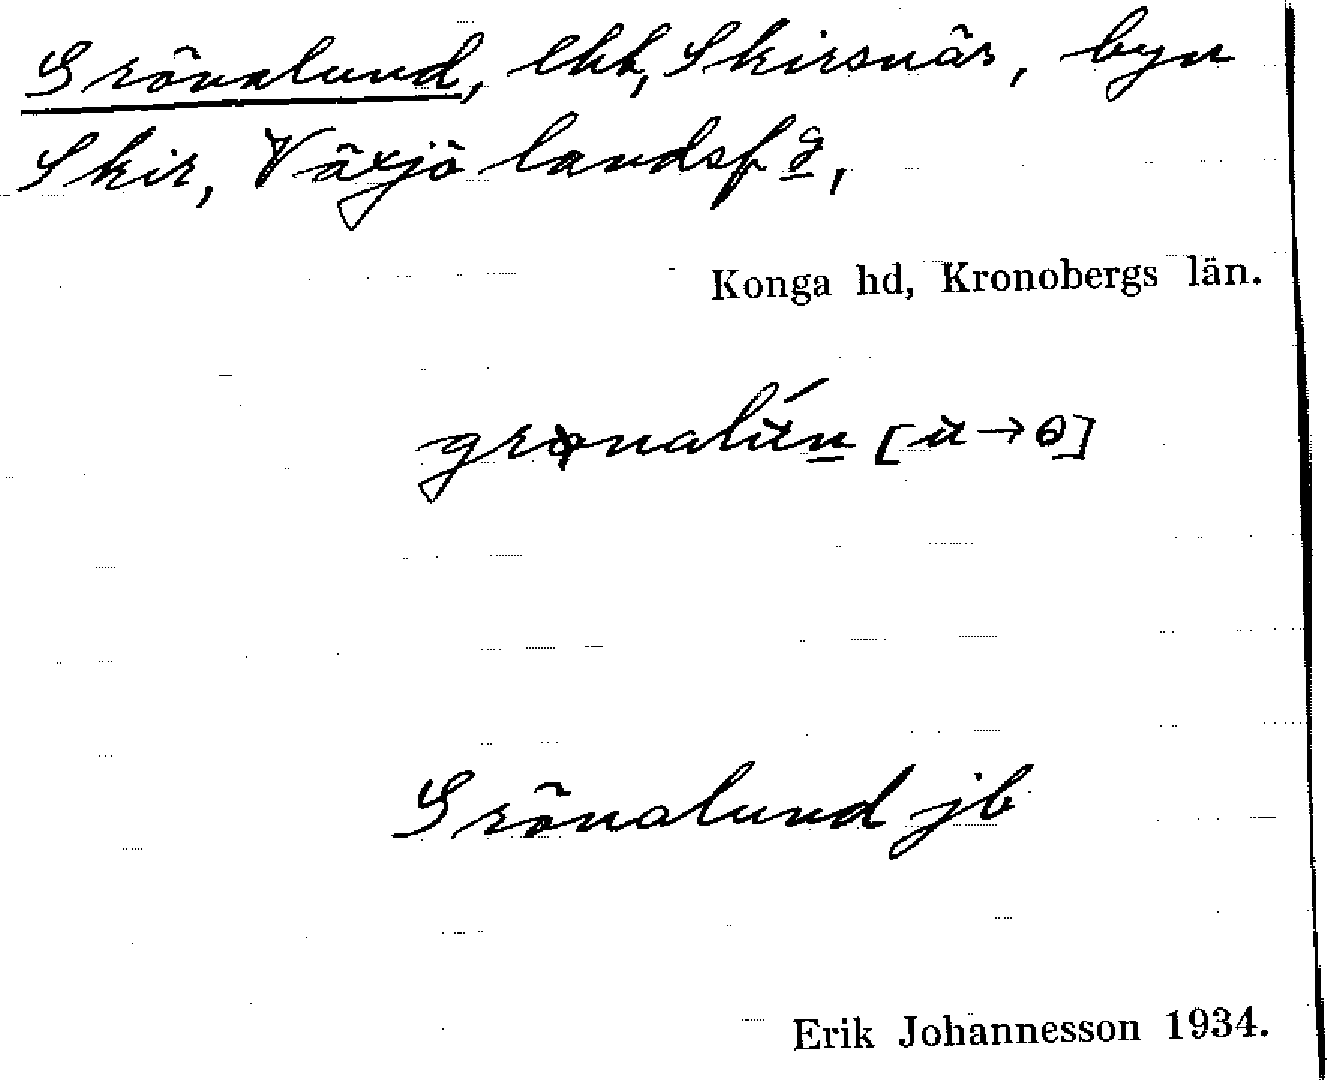 Grönalund, lht, Skirsnäs, byn
Skir, Växjö landsfg,
Konga hd, Kronobergs län.
Grönalund jb
Erik Johannesson 1934.